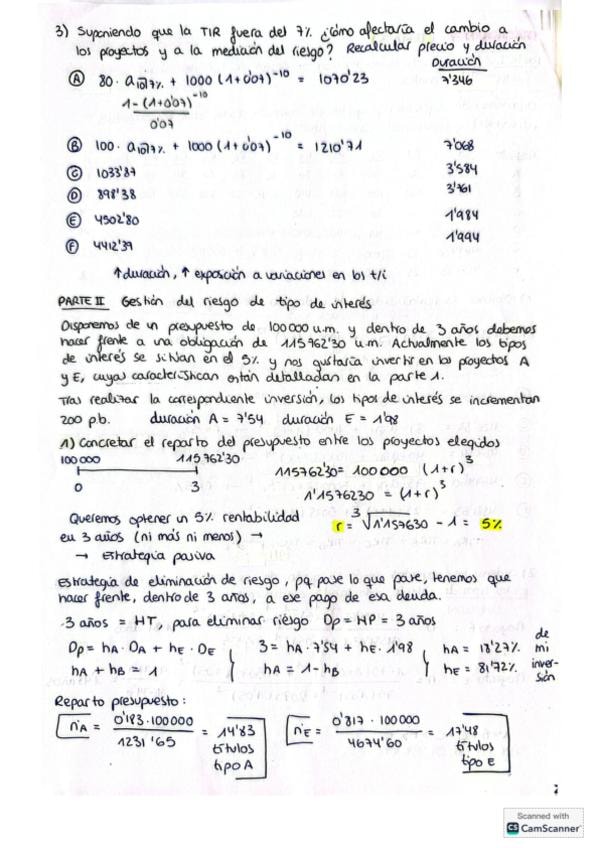 3) Suponiendo que la TIR fuera del 7% ¿Cómo afectaría el cambio a
los proyectos y a la medición del riesgo? Recalcular precio y duración
Duración
A 80 · a10¬7% + 1000 (1+0'07)^-10 = 1070'23 7'346
1-(1+0'07)^-10
0'07
B 100 · a10¬7% + 1000 (1+0'07)^-10 = 1210'71 7'068
C 1033'87 3'584
D 898'38 3'761
E 4502'80 1'984
F 4412'39 1'994
↑ duración, ↑ exposición a variaciones en los t/i
PARTE II Gestión del riesgo de tipo de interés
Disponemos de un presupuesto de 100000 u.m. y dentro de 3 años debemos
hacer frente a una obligación de 115762'30 u.m. Actualmente los tipos
de interés se sitúan en el 5% y nos gustaría invertir en los proyectos A
y E, cuyas características están detalladas en la parte 1.
Tras realizar la correspondiente inversión, los tipos de interés se incrementan
200 p.b. duración A = 7'54 duración E = 1'98
1) Concretar el reparto del presupuesto entre los proyectos elegidos
100 000 115.762'30
0 3
115762'30 = 100000 (1+r)^3
1'1576230 = (1+r)^3
r = ³√1'157630 - 1 = 5%
Queremos obtener un 5% rentabilidad
en 3 años (ni más ni menos) →
→ Estrategia pasiva
Estrategia de eliminación de riesgo, pq pase lo que pase, tenemos que
hacer frente, dentro de 3 años, a ese pago de esa deuda.
3 años = HT, para eliminar riesgo Dp = HP = 3 años
Dp = hA · DA + hE · DE { 3 = hA · 7'54 + hE · 1'98 { hA = 18'27%
hA + hB = 1 { hA = 1 - hB { hE = 81'72%
de
mi
inver-
sión
Reparto presupuesto:
nA = 0'183 · 100000 / 1231'65 = 14'83 títulos tipo A
nE = 0'817 · 100000 / 4674'60 = 17'48 títulos tipo E
Scanned with
CS CamScanner